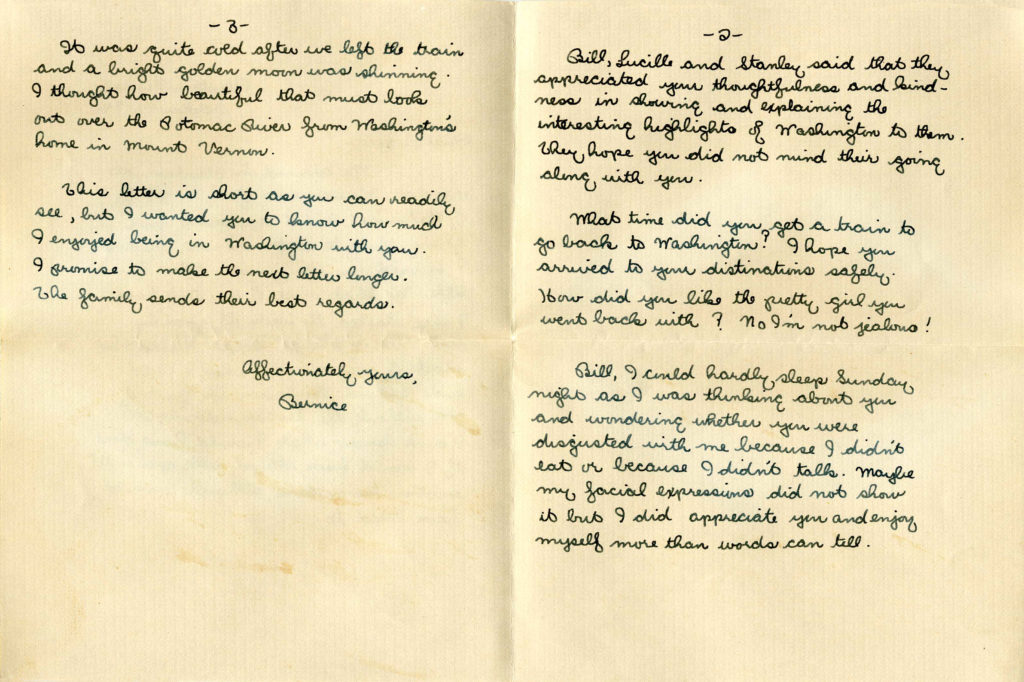 -2-
Bill, Lucille and Stanley said that they
appreciated your thoughtfulness and kind-
ness in showing and explaining the
interesting highlights of Washington to them.
They hope you did not mind their going
along with you.
What time did you get a train to
go back to Washington? I hope you
arrived to your distinations safely.
How did you like the pretty girl you
went back with? No I'm not jealous!
Bill, I could hardly sleep Sunday
night as I was thinking about you
and wondering whether you were
disgusted with me because I didn't
eat or because I didn't talk. Maybe
my facial expressions did not show
it but I did appreciate you and enjoy
myself more than words can tell.
-3-
It was quite cold after we left the train
and a bright golden moon was shinning.
I thought how beautiful that must look
out over the Potomac River from Washington's
home in Mount Vernon.
This letter is short as you can readily
see, but I wanted you to know how much
I enjoyed being in Washington with you.
I promise to make the next letter longer.
The family sends their best regards.
Affectionately yours,
Bernice